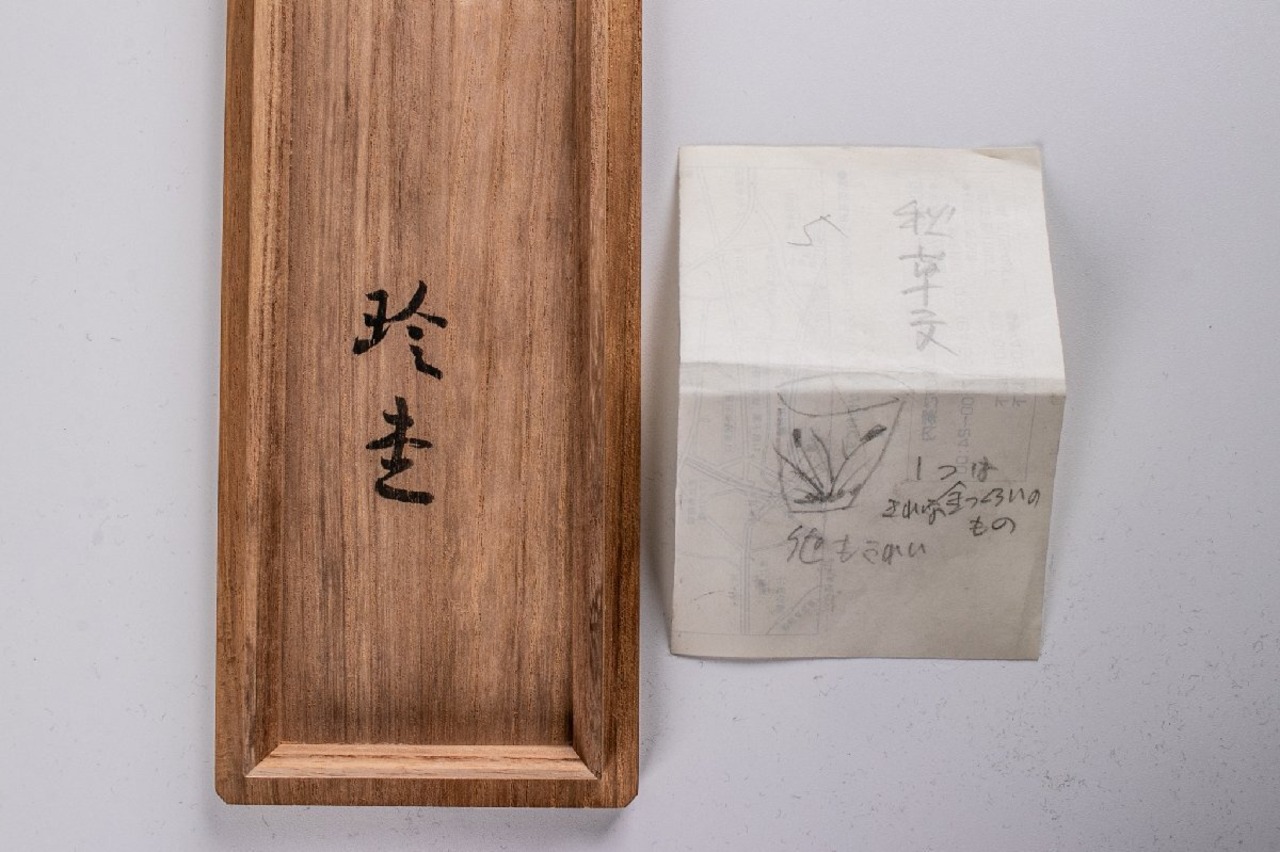 玲圭
秋草文
1つは
きれいな金つくろいの
もの
他もきれい